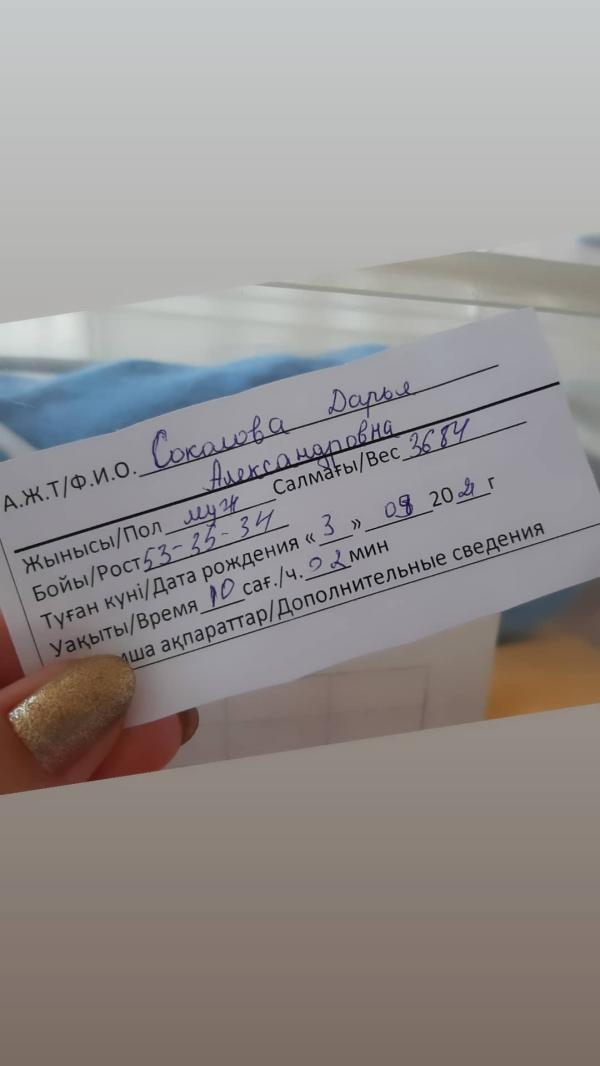 А.Ж.Т/Ф.И.О. Соколова Дарья
Александровна
Жынысы/Пол муж Салмағы/Вес 3684
Бойы/Рост 53-35-34
Туған күні/Дата рождения « 3 » 20 г
Уақыты/Время 10 сағ./ч. 02 мин
ақпараттар/Дополнительные сведения